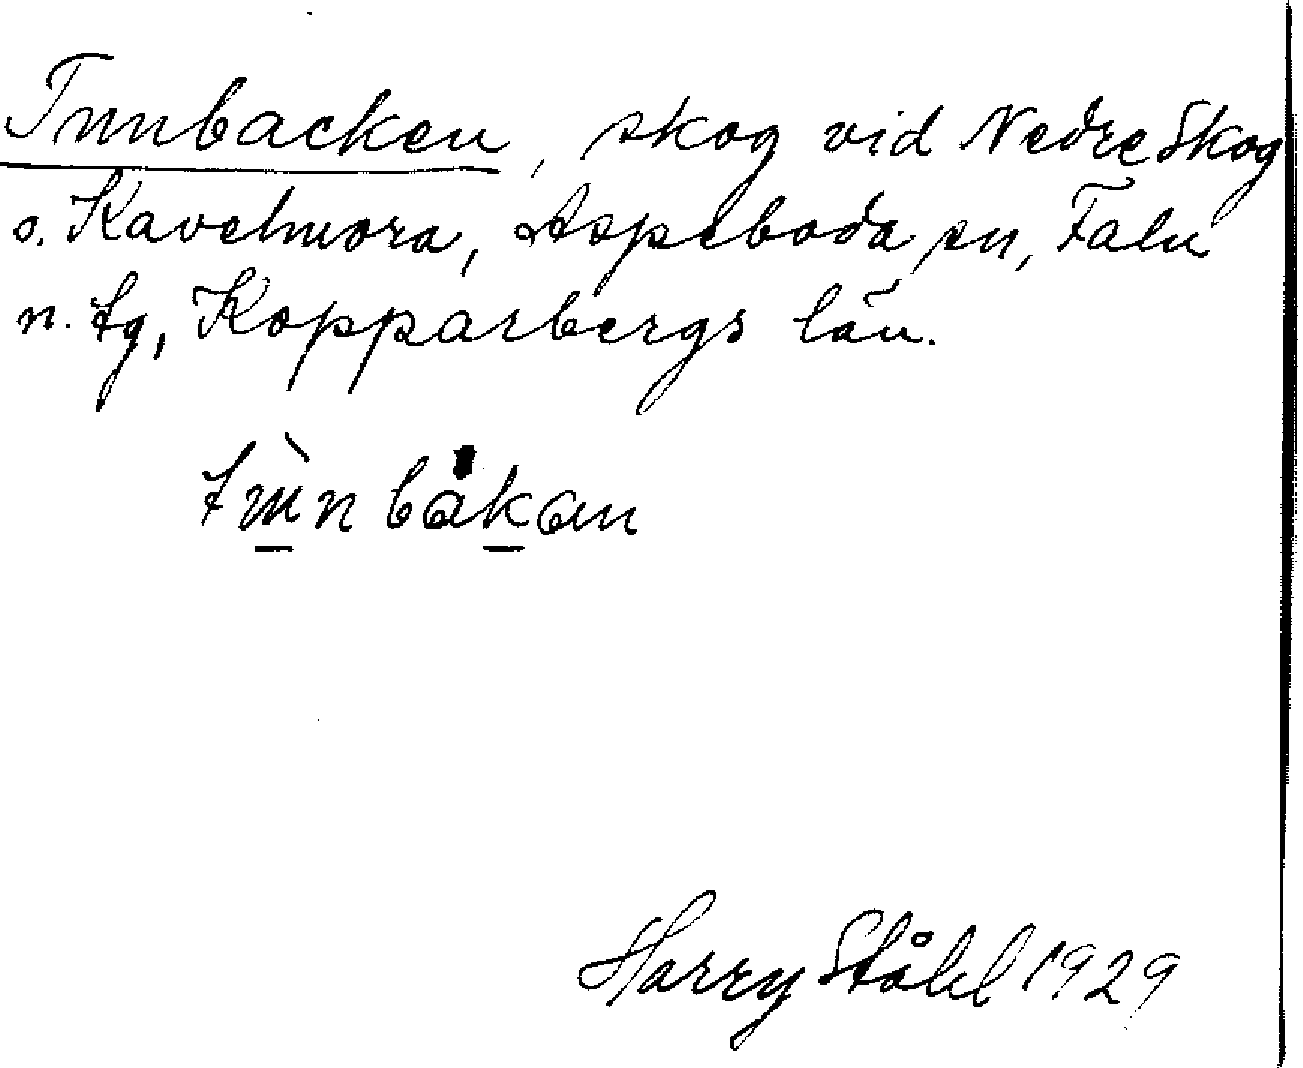 Tunbacken, skog vid Nedre Skog
o. Kavelmora, Aspeboda sn, Falu
n. tg, Kopparbergs län.
Harry Ståhl 1929